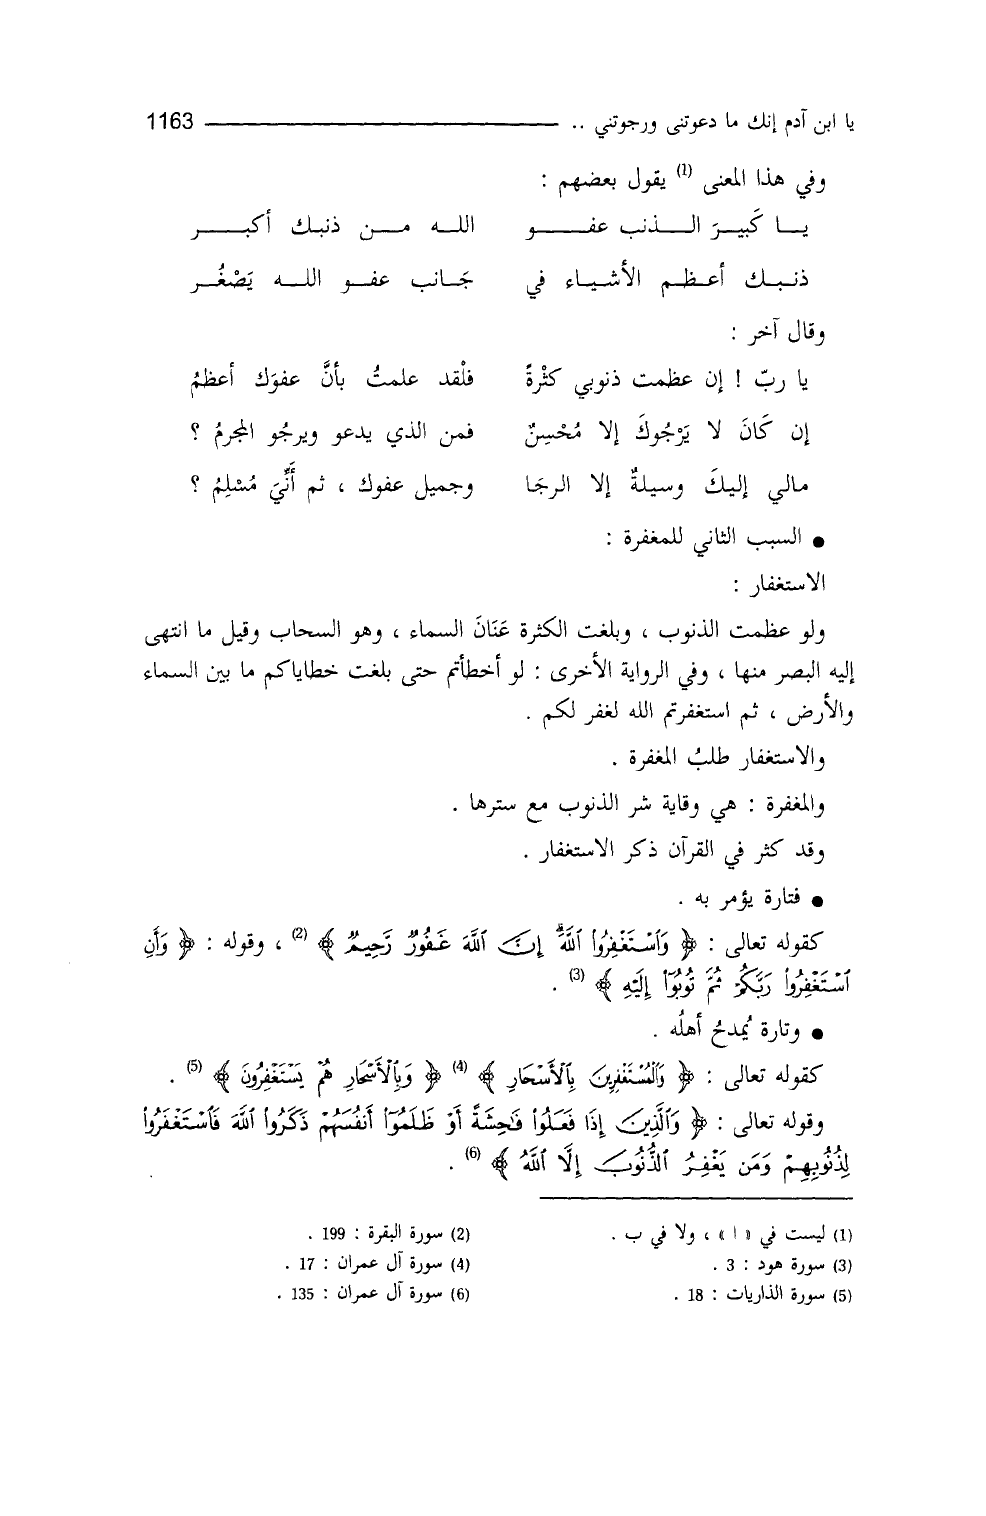 يا ابن آدم إنك ما دعوتنى ورجوتني .. 1163
وفي هذا المعنى (1) يقول بعضهم :
يـــا كَبيـــرَ الـــذنب عفـــــو اللـــه مـــن ذنبـك أكبـــــر
ذنـبـك أعـظـم الأشيـاء في جَـانب عفـو اللـــه يَصْغُـــر
وقال آخر :
يا ربّ ! إن عظمت ذنوبي كثْرةً فلْقد علمتُ بأنَّ عفوَك أعظمُ
إن كَانَ لا يَرْجُوكَ إلا مُحْسِنٌ فمن الذي يدعو ويرجُو المجرمُ ؟
مالي إليكَ وسيلةٌ إلا الرجَا وجميل عفوك ، ثم أَنِّيَ مُسْلِمُ ؟
● السبب الثاني للمغفرة :
الاستغفار :
ولو عظمت الذنوب ، وبلغت الكثرة عَنَانَ السماء ، وهو السحاب وقيل ما انتهى
إليه البصر منها ، وفي الرواية الأخرى : لو أخطأتم حتى بلغت خطاياكم ما بين السماء
والأرض ، ثم استغفرتم الله لغفر لكم .
والاستغفار طلبُ المغفرة .
والمغفرة : هي وقاية شر الذنوب مع سترها .
وقد كثر في القرآن ذكر الاستغفار .
● فتارة يؤمر به .
كقوله تعالى : ﴿ وَٱسْتَغْفِرُوا۟ ٱللَّهَ ۖ إِنَّ ٱللَّهَ غَفُورٌ رَّحِيمٌ ﴾ (2) ، وقوله : ﴿ وَأَنِ
ٱسْتَغْفِرُوا۟ رَبَّكُمْ ثُمَّ تُوبُوٓا۟ إِلَيْهِ ﴾ (3) .
● وتارة يُمدحُ أهلُه .
كقوله تعالى : ﴿ وَٱلْمُسْتَغْفِرِينَ بِٱلْأَسْحَارِ ﴾ (4) ﴿ وَبِٱلْأَسْحَارِ هُمْ يَسْتَغْفِرُونَ ﴾ (5) .
وقوله تعالى : ﴿ وَٱلَّذِينَ إِذَا فَعَلُوا۟ فَـٰحِشَةً أَوْ ظَلَمُوٓا۟ أَنفُسَهُمْ ذَكَرُوا۟ ٱللَّهَ فَٱسْتَغْفَرُوا۟
لِذُنُوبِهِمْ وَمَن يَغْفِرُ ٱلذُّنُوبَ إِلَّا ٱللَّهُ ﴾ (6) .
(1) ليست في « ا » ، ولا في ب . (2) سورة البقرة : 199 .
(3) سورة هود : 3 . (4) سورة آل عمران : 17 .
(5) سورة الذاريات : 18 . (6) سورة آل عمران : 135 .